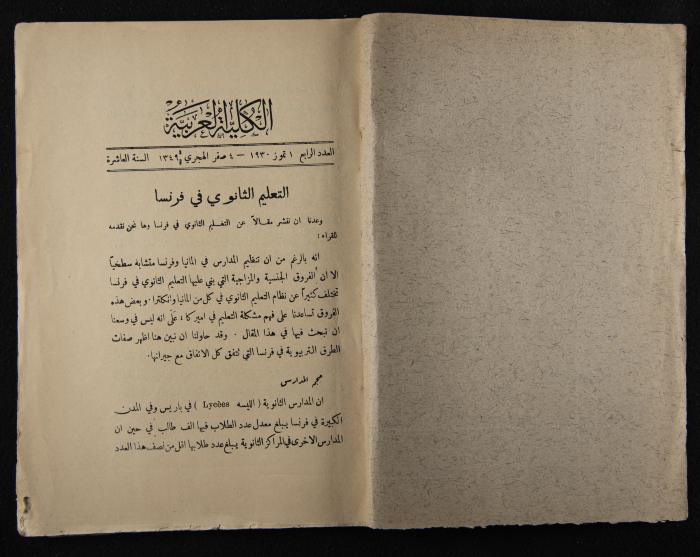 الكلية العربية
العدد الرابع ١ تموز ١٩٣٠ — ٤ صفر الهجري ١٣٤٩ السنة العاشرة
التعليم الثانوي في فرنسا
وعدنا ان ننشر مقالاً عن التعليم الثانوي في فرنسا وها نحن نقدمه
للقراء :
انه بالرغم من ان تنظيم المدارس في المانيا وفرنسا متشابه سطحياً
الا ان الفروق الجنسية والمزاجية التي بني عليها التعليم الثانوي في فرنسا
تختلف كثيراً عن نظام التعليم الثانوي في كل من المانيا وانكلترا . وبعض هذه
الفروق تساعدنا على فهم مشكلة التعليم في اميركا ، على انه ليس في وسعنا
ان نبحث فيها في هذا المقال . وقد حاولنا ان نبين هنا اظهر صفات
الطرق التربيوية في فرنسا التي تتفق كل الاتفاق مع جيرانها .
حجم المدارس
ان المدارس الثانوية ( الليسه Lycées ) في باريس وفي المدن
الكبيرة في فرنسا يبلغ معدل عدد الطلاب فيها الف طالب في حين ان
المدارس الاخرى في المراكز الثانوية يبلغ عدد طلابها اقل من نصف هذا العدد